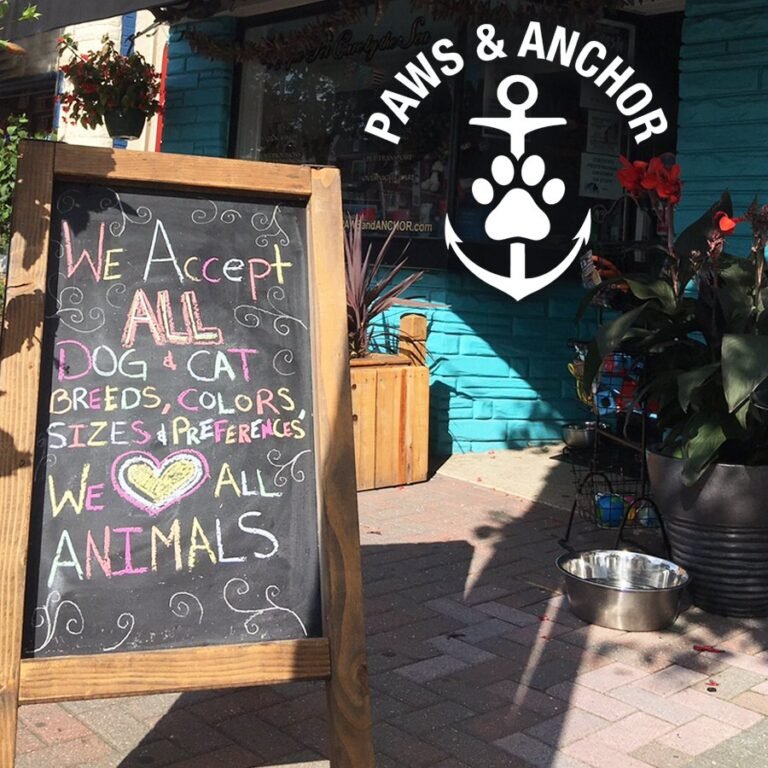 PAWS & ANCHOR
PAWSandANCHOR.com
We Accept
ALL
DOG & CAT
BREEDS, COLORS,
SIZES & PREFERENCES
WE ALL
ANIMALS